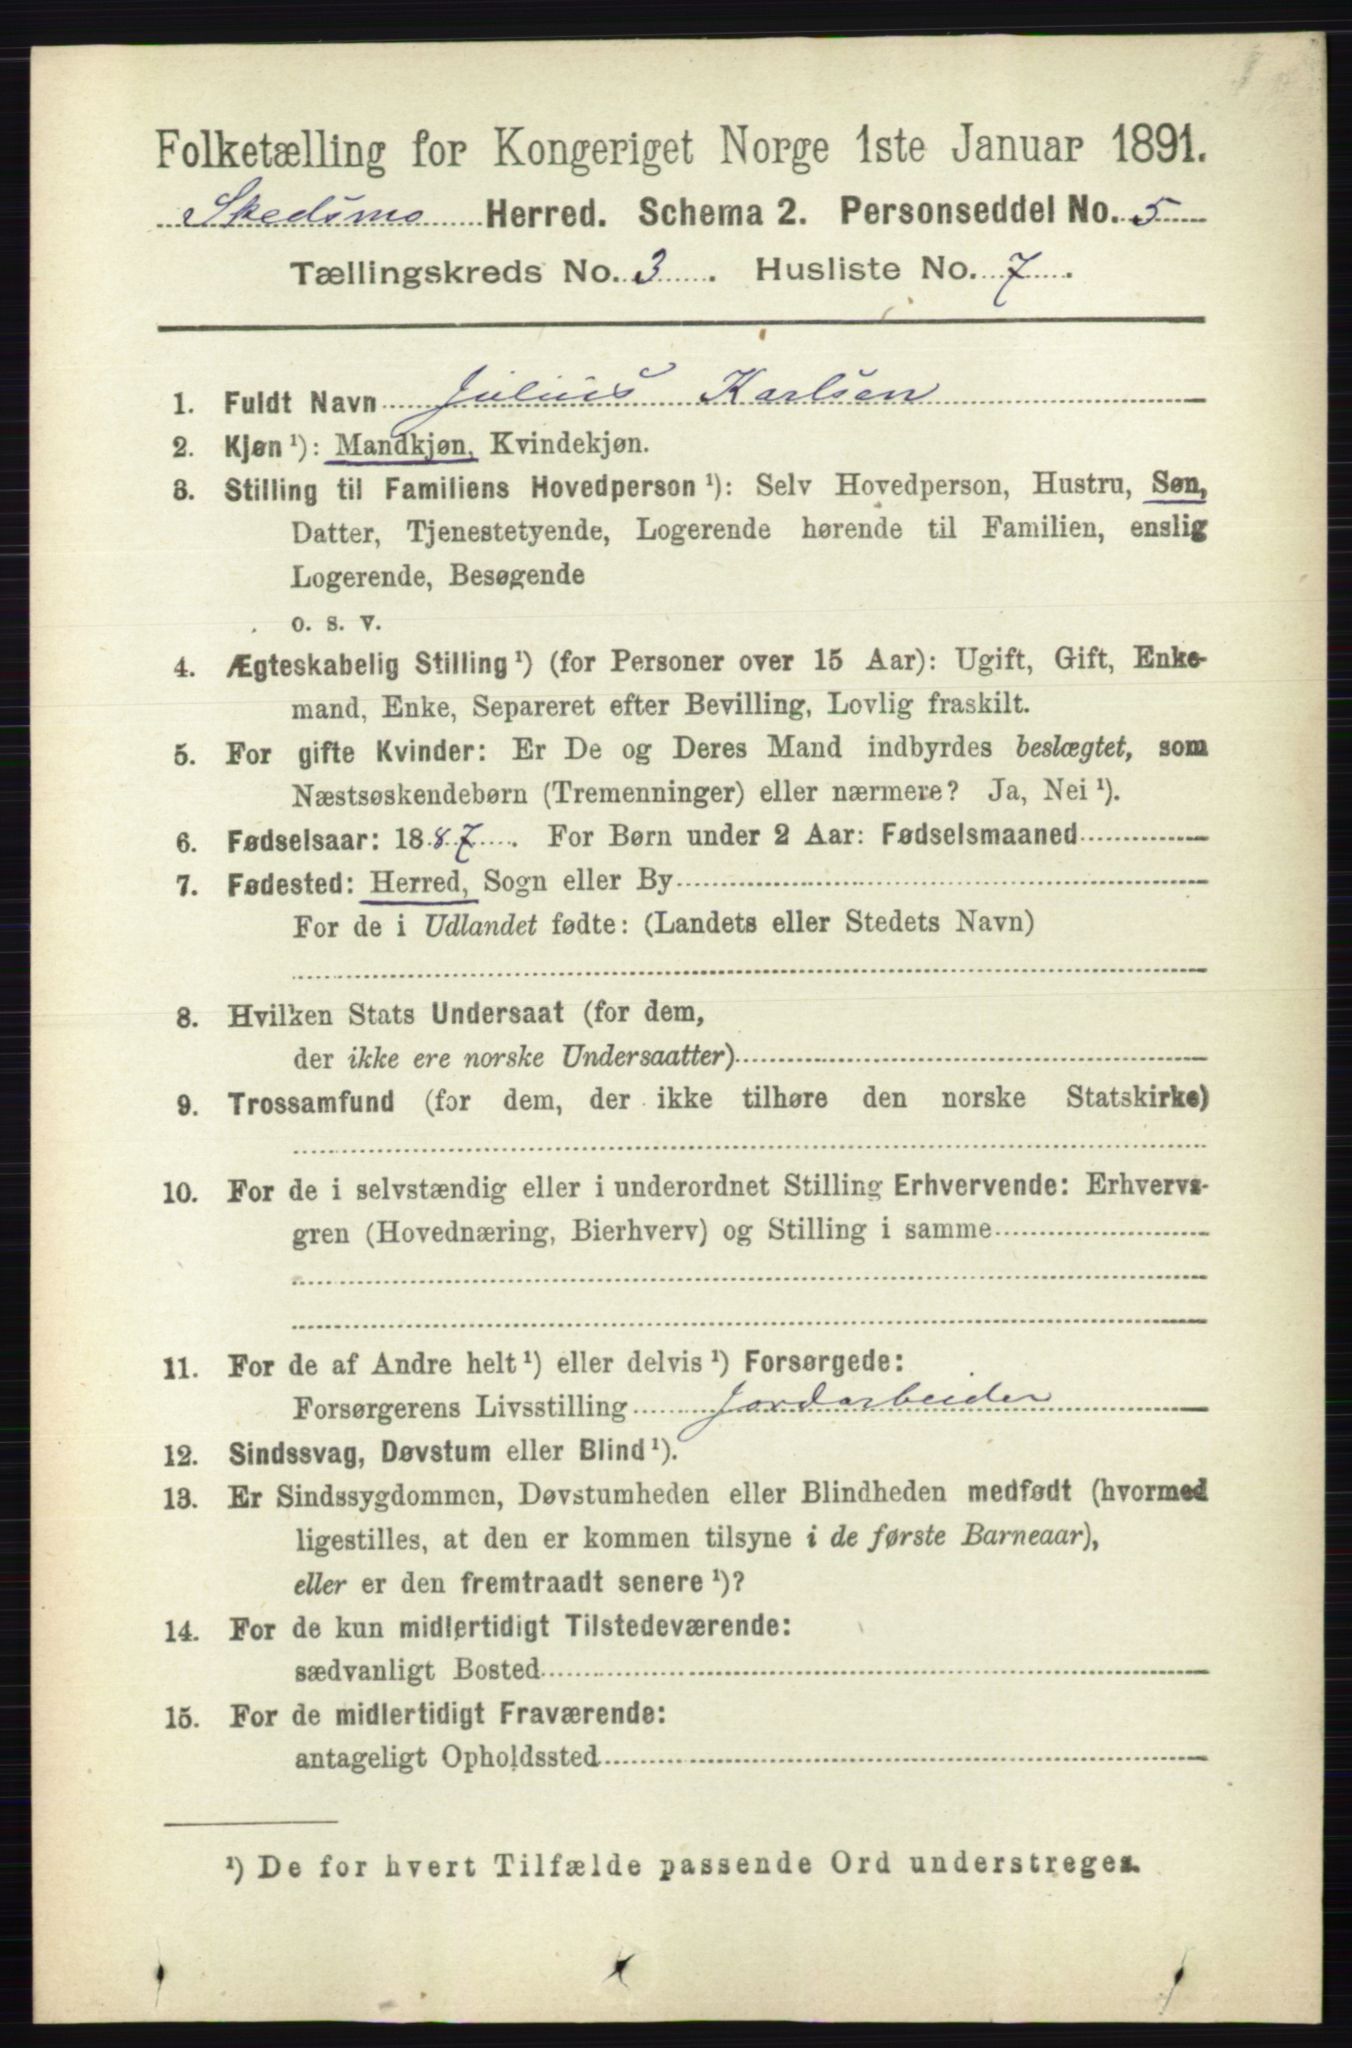 Folketælling for Kongeriget Norge 1ste Januar 1891.
Skedsmo Herred. Schema 2. Personseddel No. 5
Tællingskreds No. 3. Husliste No. 7.
1. Fuldt Navn Julius Karlsen
2. Kjøn ¹): Mandkjøn, Kvindekjøn.
3. Stilling til Familiens Hovedperson ¹): Selv Hovedperson, Hustru, Søn,
Datter, Tjenestetyende, Logerende hørende til Familien, enslig
Logerende, Besøgende
o. s. v.
4. Ægteskabelig Stilling ¹) (for Personer over 15 Aar): Ugift, Gift, Enke-
mand, Enke, Separeret efter Bevilling, Lovlig fraskilt.
5. For gifte Kvinder: Er De og Deres Mand indbyrdes beslægtet, som
Næstsøskendebørn (Tremenninger) eller nærmere? Ja, Nei ¹).
6. Fødselsaar: 1887. For Børn under 2 Aar: Fødselsmaaned
7. Fødested: Herred, Sogn eller By
For de i Udlandet fødte: (Landets eller Stedets Navn)
8. Hvilken Stats Undersaat (for dem,
der ikke ere norske Undersaatter)
9. Trossamfund (for dem, der ikke tilhøre den norske Statskirke)
10. For de i selvstændig eller i underordnet Stilling Erhvervende: Erhvervs-
gren (Hovednæring, Bierhverv) og Stilling i samme
11. For de af Andre helt ¹) eller delvis ¹) Forsørgede:
Forsørgerens Livsstilling Jordarbeider
12. Sindssvag, Døvstum eller Blind ¹).
13. Er Sindssygdommen, Døvstumheden eller Blindheden medfødt (hvormed
ligestilles, at den er kommen tilsyne i de første Barneaar),
eller er den fremtraadt senere ¹)?
14. For de kun midlertidigt Tilstedeværende:
sædvanligt Bosted
15. For de midlertidigt Fraværende:
antageligt Opholdssted
¹) De for hvert Tilfælde passende Ord understreges.